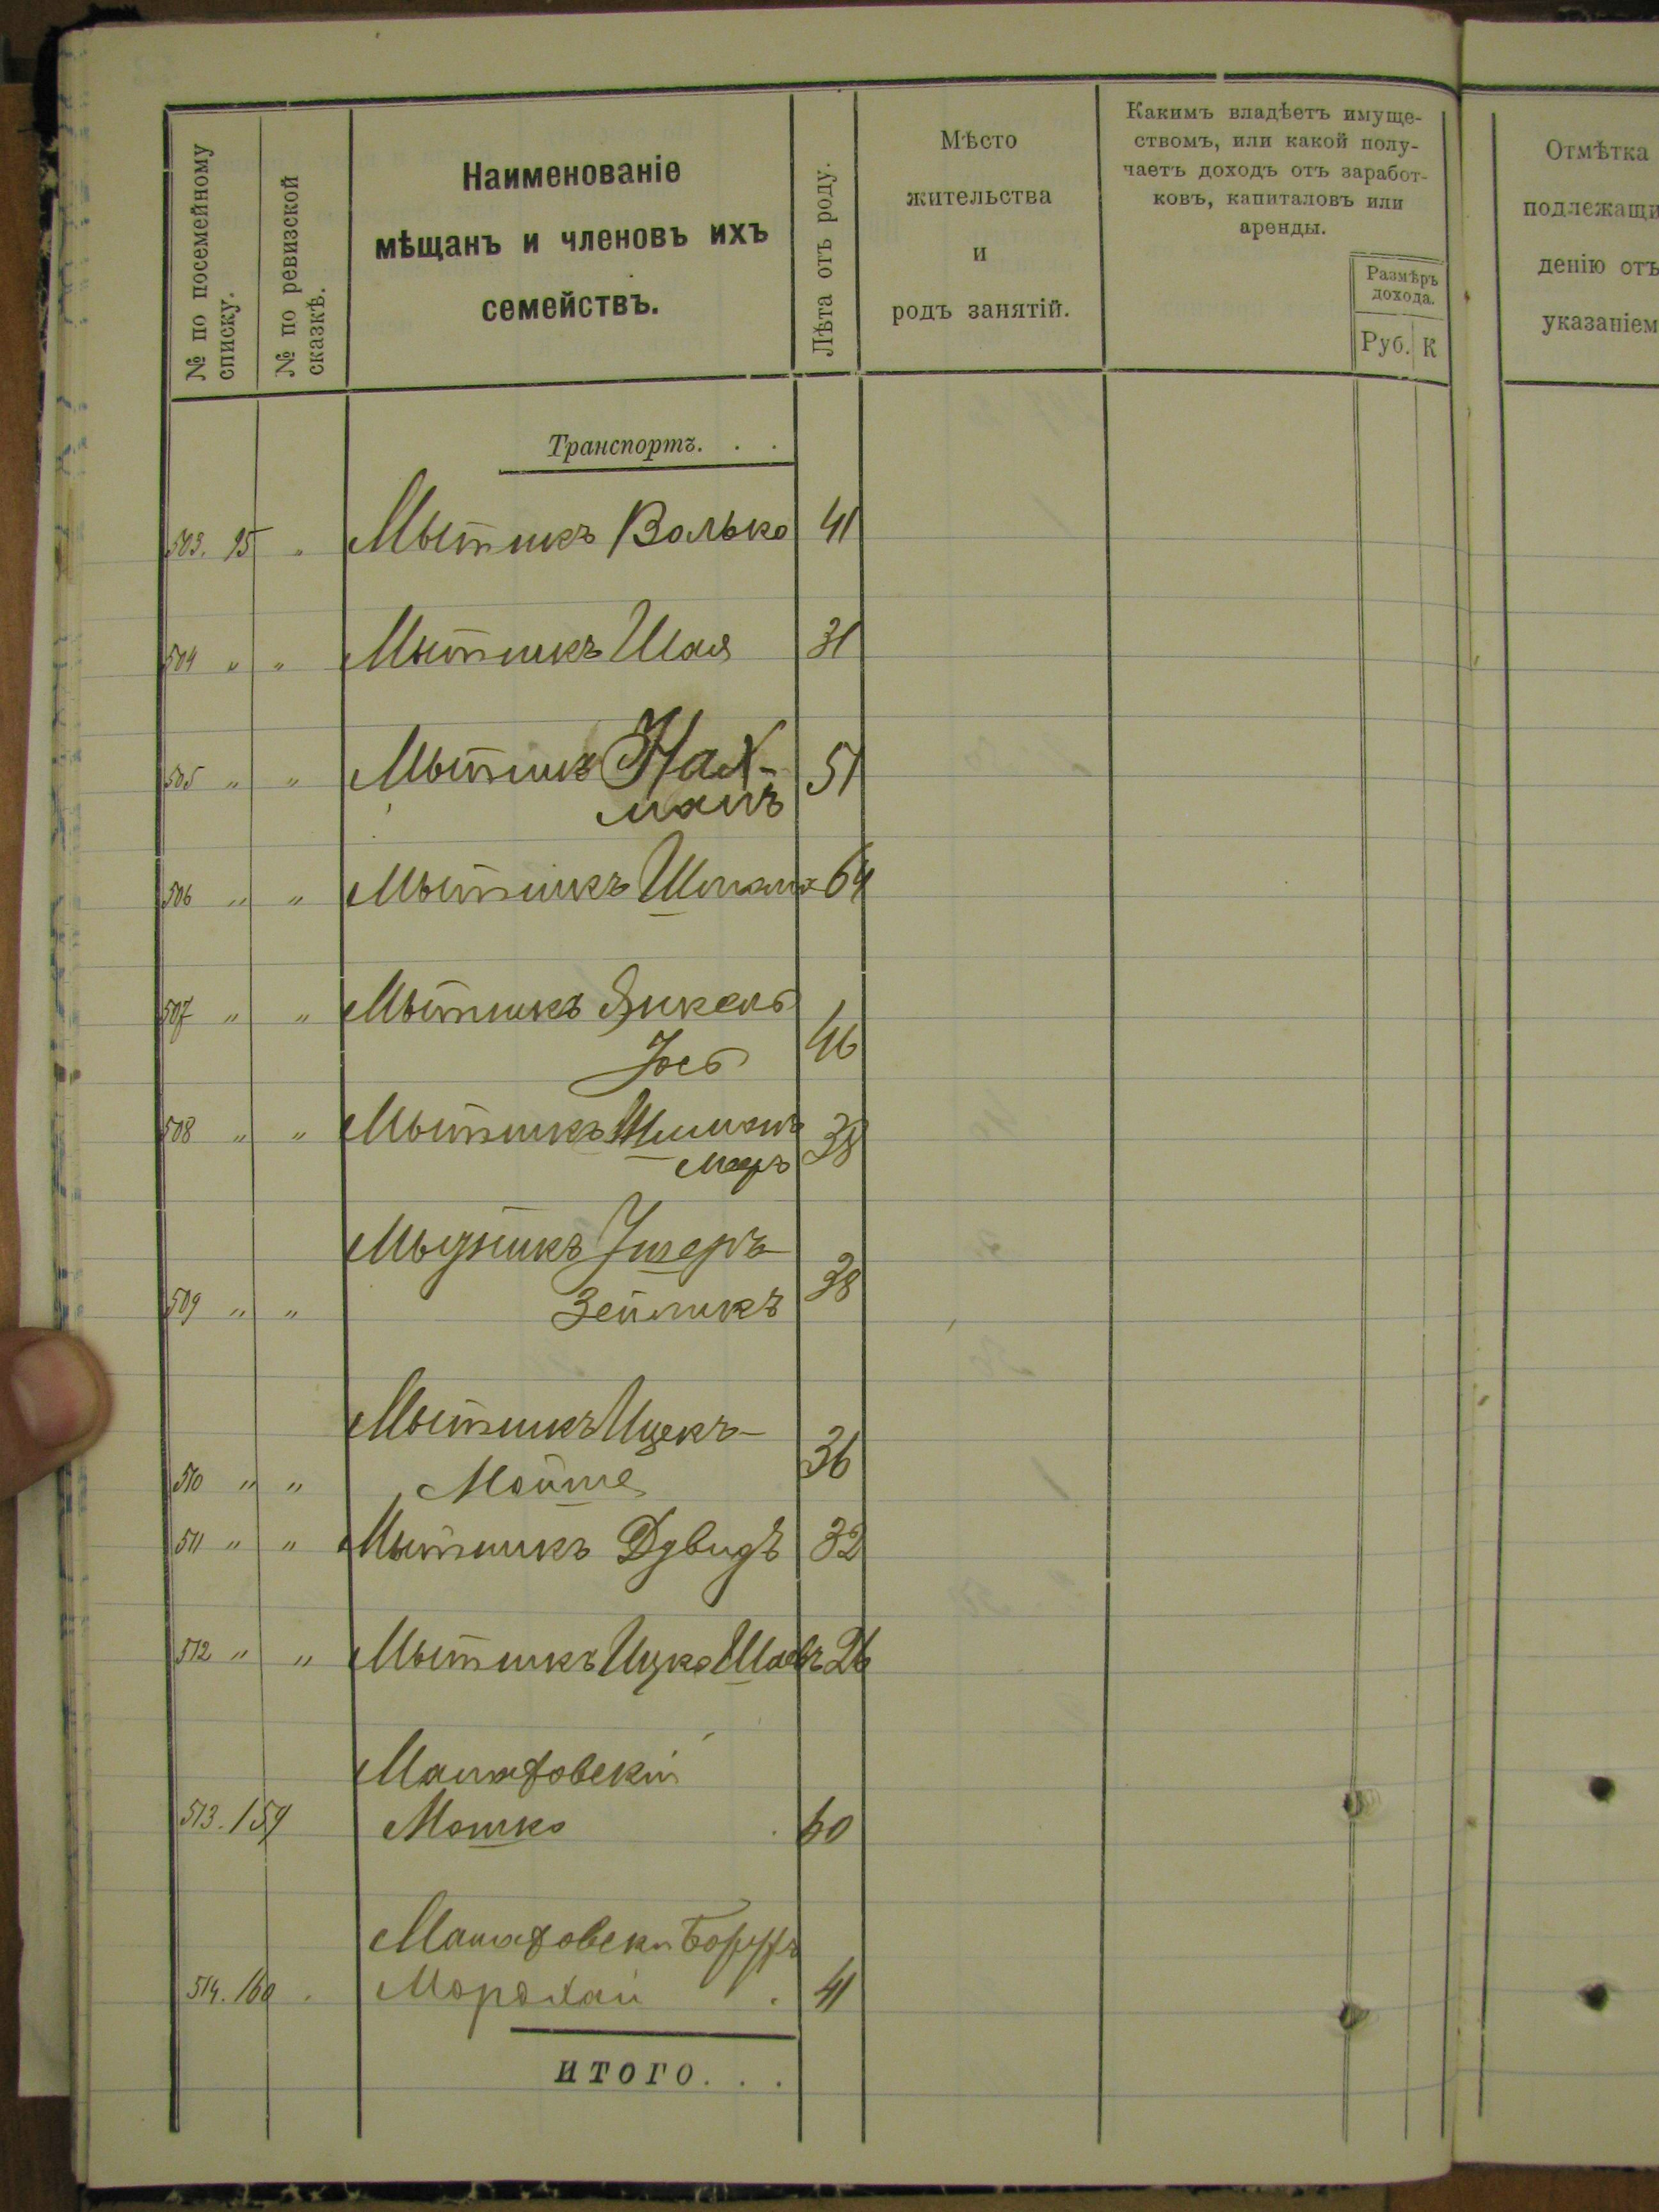 № по посемейному
списку.
№ по ревизской
сказкѣ.
Наименованіе
мѣщанъ и членовъ ихъ
семействъ.
Лѣта отъ роду.
Мѣсто
жительства
и
родъ занятій.
Какимъ владѣетъ имуще-
ствомъ, или какой полу-
чаетъ доходъ отъ заработ-
ковъ, капиталовъ или
аренды.
Размѣръ
дохода.
Руб. К
Отмѣтка
подлежащи
денію отъ
указаніем
Транспортъ. . .
503. 95 " Мытникъ Волько 41
504 " " Мытникъ Шая 31
505 " " Мытникъ Нах- 51
манъ
506 " " Мытникъ 64
507 " " Мытникъ Янкель
Іось 46
508 " " Мытникъ Шимонъ 38
Мееръ
Мытникъ Ушеръ-
509 " " Зейликъ 38
Мытникъ Ицекъ-
510 " " Мойше 36
511 " " Мытникъ Дувидъ 32
512 " " Мытникъ Ицко 26
513. 159 Мошко 60
Борухъ
514. 160 . Мордхай . 41
ИТОГО. . .